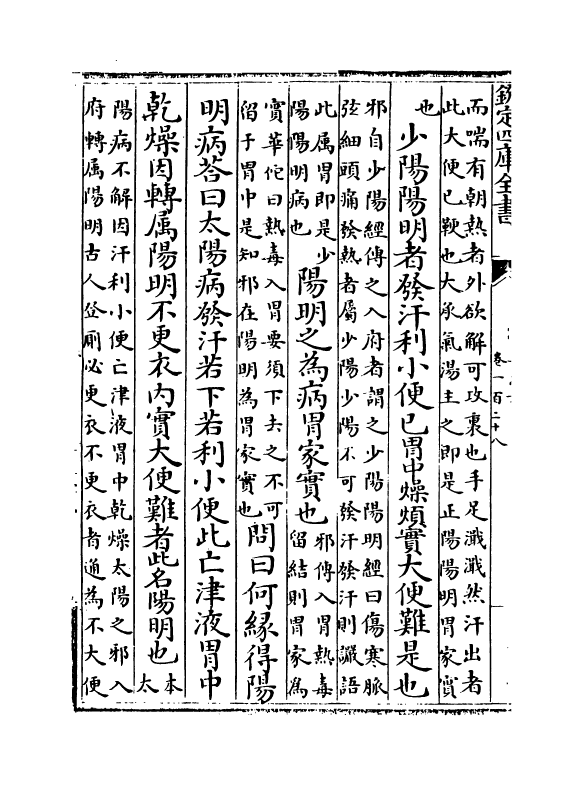 欽定四庫全書
卷一百二十八
而喘有朝熱者外欲解可攻裏也手足濈濈然汗出者
此大便已鞕也大承氣湯主之即是正陽陽明胃家實
也
少陽陽明者發汗利小便已胃中燥煩實大便難是也
邪自少陽經傳之入府者謂之少陽陽明經曰傷寒脈
弦細頭痛發熱者屬少陽少陽不可發汗發汗則讝語
此属胃即是少
陽陽明病也
陽明之為病胃家實也
邪傳入胃熱毒
留結則胃家為
實華佗曰熱毒入胃要須下去之不可
留于胃中是知邪在陽明為胃家實也
問曰何緣得陽
明病荅曰太陽病發汗若下若利小便此亡津液胃中
乾燥因轉属陽明不更衣内實大便難者此名陽明也
本
太
陽病不解因汗利小便亡津液胃中乾燥太陽之邪入
府轉属陽明古人登厠必更衣不更衣者通為不大便